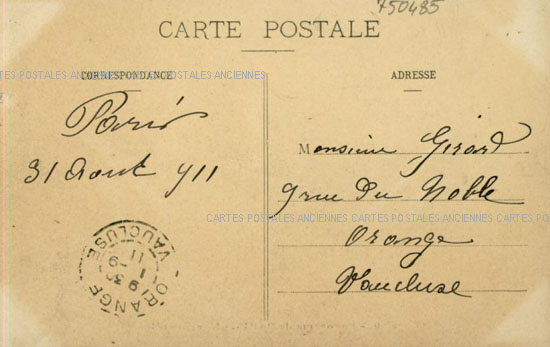 750485
CARTE POSTALE
CORRESPONDANCE
ADRESSE
CARTES POSTALES ANCIENNES CARTES POSTALES ANCIENNES
Paris
31 Aout 911
Monsieur Girard
9 rue Du Noble
Orange
Vaucluse
CARTES POSTALES ANCIENNES CARTES POSTALES ANCIENNES CARTES POSTALES
ORANGE
VAUCLUSE
9 30
1 -9
11